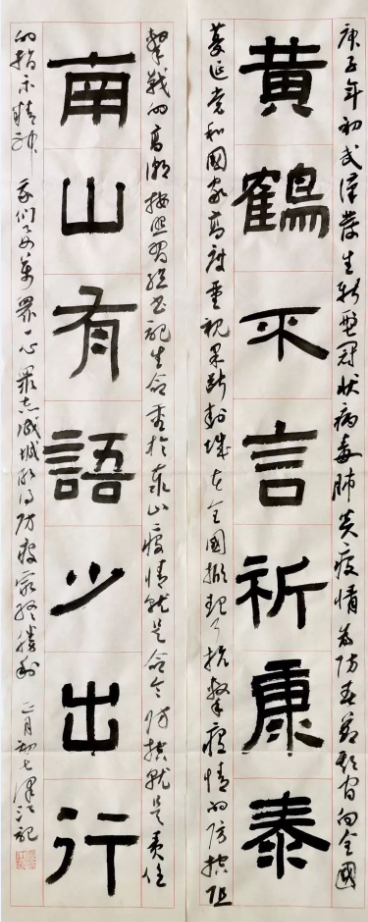 庚子年初武漢發生新型冠狀病毒肺炎疫情為防春節向全國
黃鶴不言祈康泰
蔓延党和國家高度重視果斷封城在全國掀起了抗擊疫情的防控阻
擊戰的高潮按照習總書記生命重於泰山疫情就是命令防控就是責任
南山有語少出行
的指示精神 我们萬眾一心眾志成城防疫最終勝利 正月初七澤江記